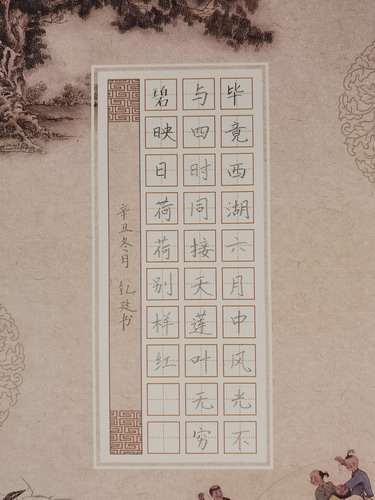 毕竟西湖六月中风光不
与四时同接天莲叶无穷
碧映日荷荷别样红
辛丑冬月 书